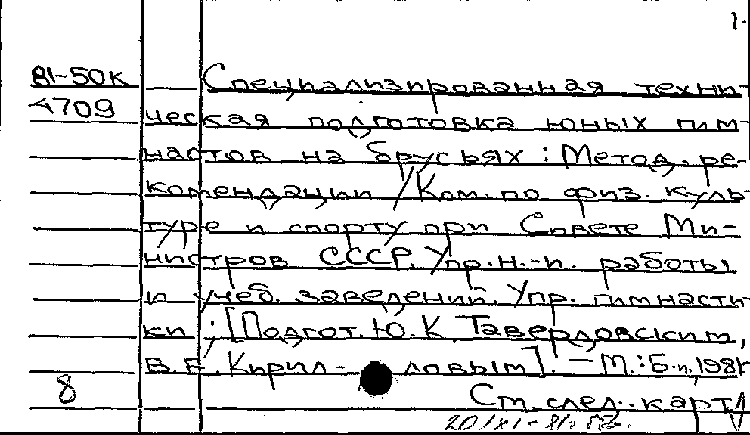 1-
81-50к Специализированная техни-
4709 ческая подготовка юных гим-
настов на брусьях : Метод. ре-
комендации / Ком. по физ. куль-
туре и спорту при Совете Ми-
нистров СССР. Упр. н.-и. работы
и учеб. заведений. Упр. гимнасти-
ки ; [Подгот. Ю. К. Тавердовским,
В. Е. Кирил- ловым]. — М. : Б. и., 1981
8 См. след. карт